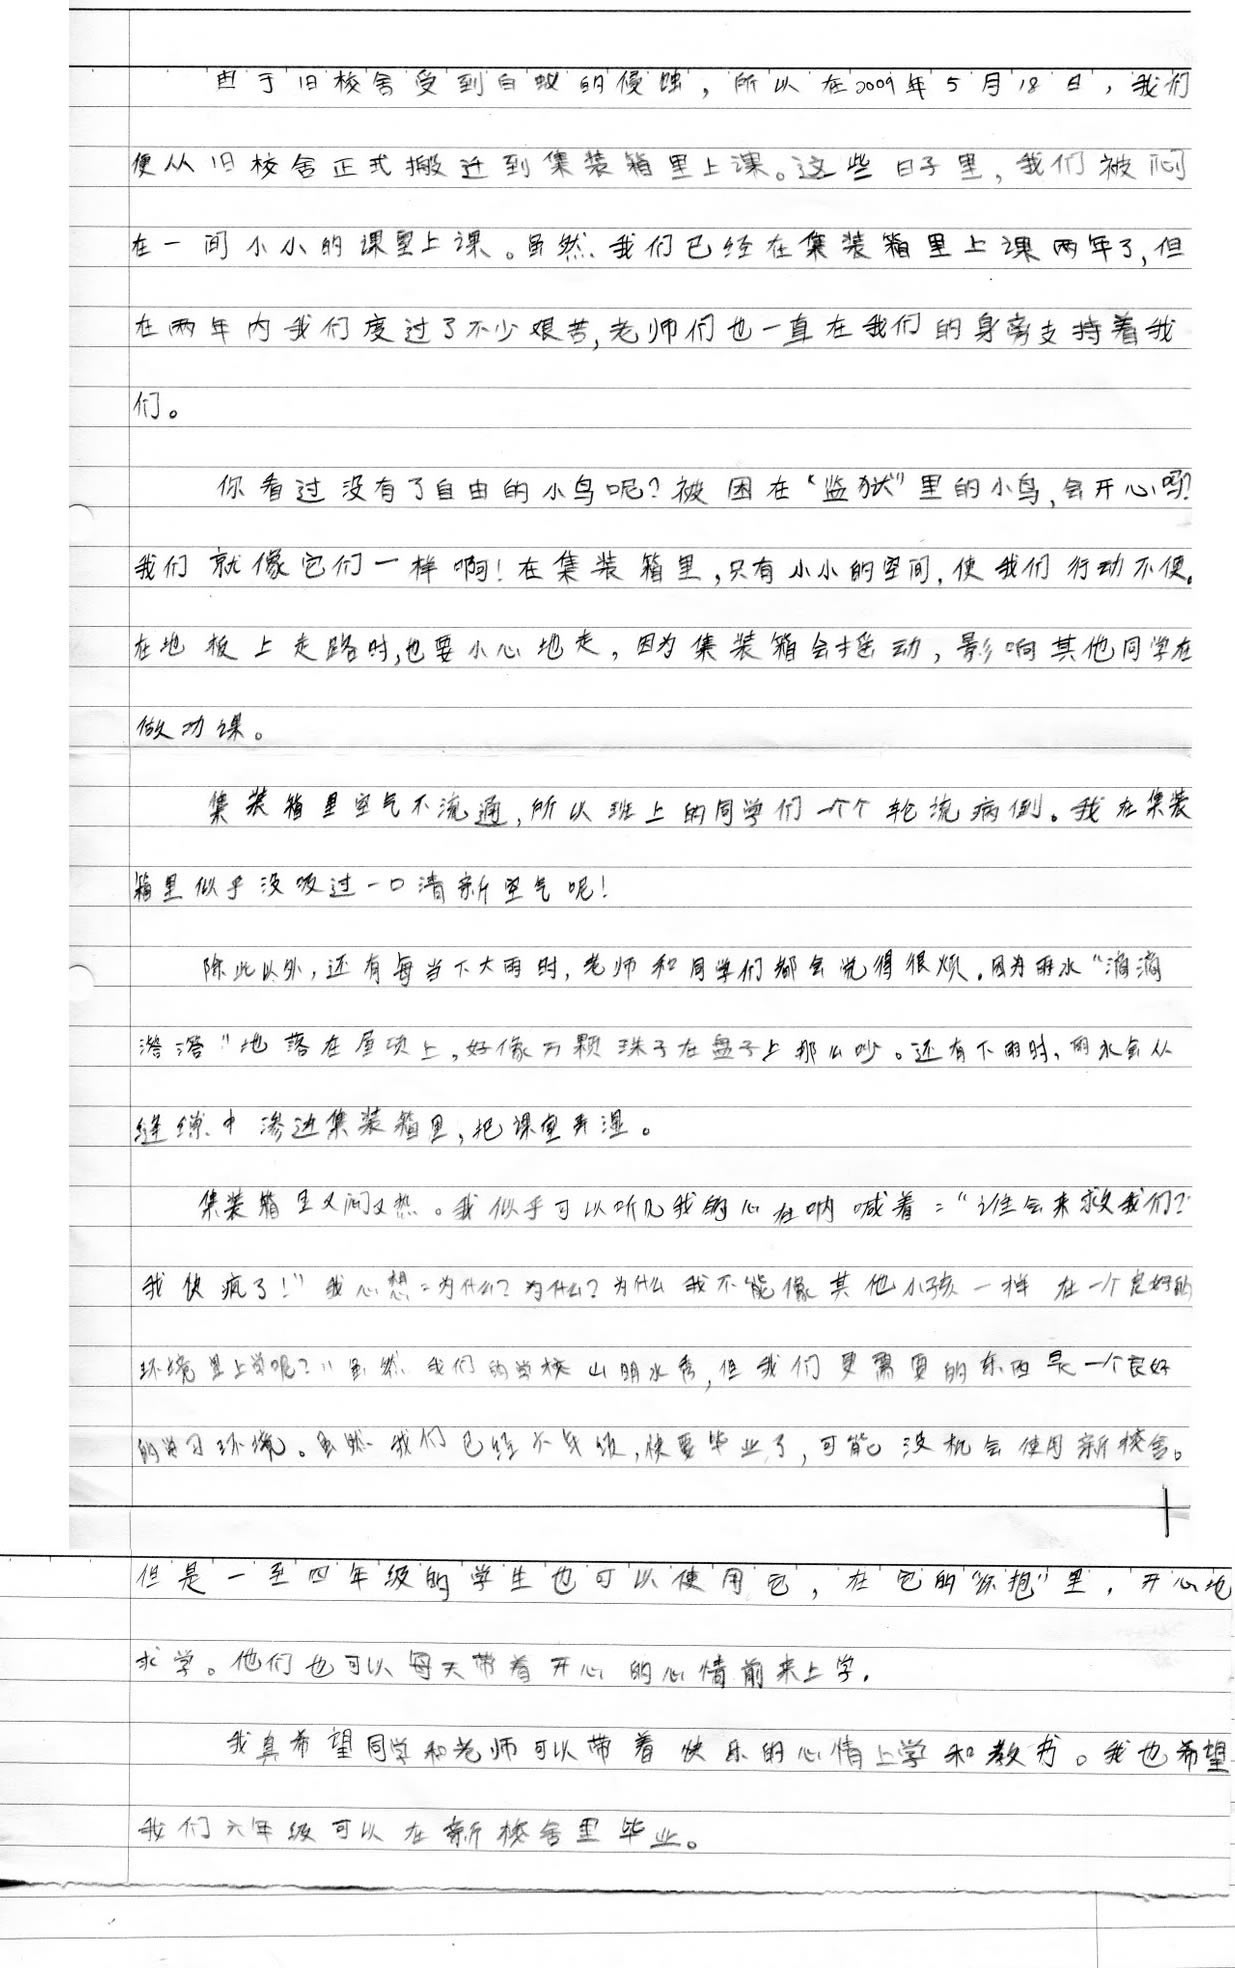 由于旧校舍受到白蚁的侵蚀，所以在2009年5月18日，我们
便从旧校舍正式搬迁到集装箱里上课。这些日子里，我们被闷
在一间小小的课室上课。虽然我们已经在集装箱里上课两年了，但
在两年内我们度过了不少艰苦，老师们也一直在我们的身旁支持着我
们。
你看过没有了自由的小鸟呢？被困在“监狱”里的小鸟，会开心吗？
我们就像它们一样啊！在集装箱里，只有小小的空间，使我们行动不便。
在地板上走路时，也要小心地走，因为集装箱会摇动，影响其他同学在
做功课。
集装箱里空气不流通，所以班上的同学们一个个轮流病倒。我在集装
箱里似乎没吸过一口清新空气呢！
除此以外，还有每当下大雨时，老师和同学们都会觉得很烦。因为雨水“滴滴
答答”地落在屋顶上，好像万颗珠子在盘子上那么吵。还有下雨时，雨水会从
缝隙中渗进集装箱里，把课室弄湿。
集装箱里又闷又热。我似乎可以听见我的心在呐喊着：“谁会来救我们？
我快疯了！”我心想：为什么？为什么？为什么我不能像其他小孩一样在一个良好的
环境里上学呢？”虽然我们的学校山明水秀，但我们更需要的东西是一个良好
的学习环境。虽然我们已经六年级，快要毕业了，可能没机会使用新校舍。
但是一至四年级的学生也可以使用它，在它的“怀抱”里，开心地
求学。他们也可以每天带着开心的心情前来上学。
我真希望同学和老师可以带着快乐的心情上学和教书。我也希望
我们六年级可以在新校舍里毕业。